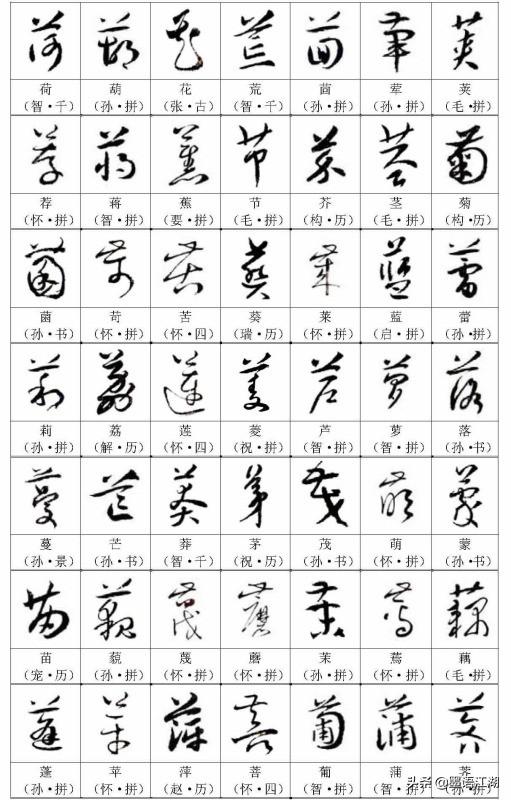 荷 葫 花 荒 茴 荤 荚
(智·千) (孙·拼) (张·古) (智·千) (孙·拼) (孙·拼) (毛·拼)
荐 蒋 蕉 节 芥 茎 菊
(怀·拼) (智·拼) (要·拼) (毛·拼) (构·历) (毛·拼) (构·历)
菌 苛 苦 葵 莱 蓝 蕾
(孙·书) (怀·拼) (怀·四) (瑞·历) (怀·拼) (启·拼) (孙·拼)
莉 荔 莲 菱 芦 萝 落
(孙·拼) (解·历) (怀·四) (祝·拼) (智·拼) (智·拼) (孙·书)
蔓 芒 莽 茅 茂 萌 蒙
(孙·景) (孙·书) (智·千) (祝·历) (孙·书) (怀·拼) (孙·书)
苗 藐 蔑 蘑 茉 蔫 藕
(宠·历) (孙·拼) (怀·拼) (怀·拼) (孙·拼) (怀·拼) (毛·拼)
蓬 苹 萍 菩 葡 蒲 荠
(孙·拼) (孙·拼) (赵·历) (怀·四) (孙·拼) (智·拼) (孙·拼)
头条 @墨语江湖